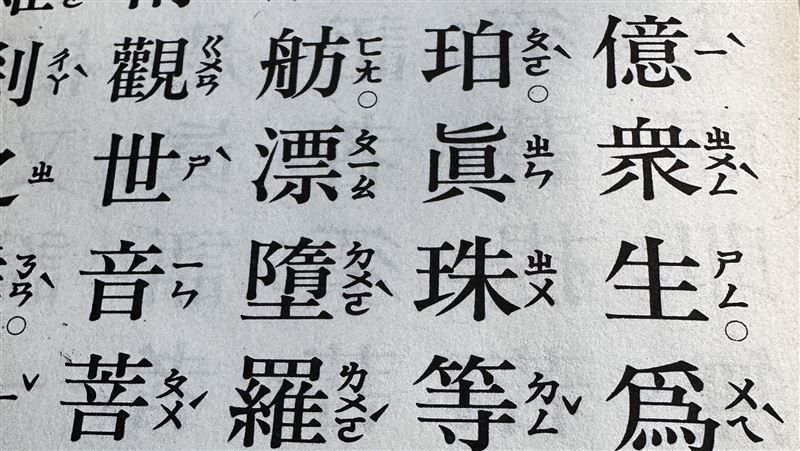 億ㄧˋ衆ㄓㄨㄥˋ生ㄕㄥ○爲ㄨㄟˋ
珀ㄆㄛˋ○眞ㄓㄣ珠ㄓㄨ等ㄉㄥˇ
舫ㄈㄤ○漂ㄆㄧㄠ墮ㄉㄨㄛˋ羅ㄌㄨㄛˊ
觀ㄍㄨㄢ世ㄕˋ音ㄧㄣ菩ㄆㄨˊ